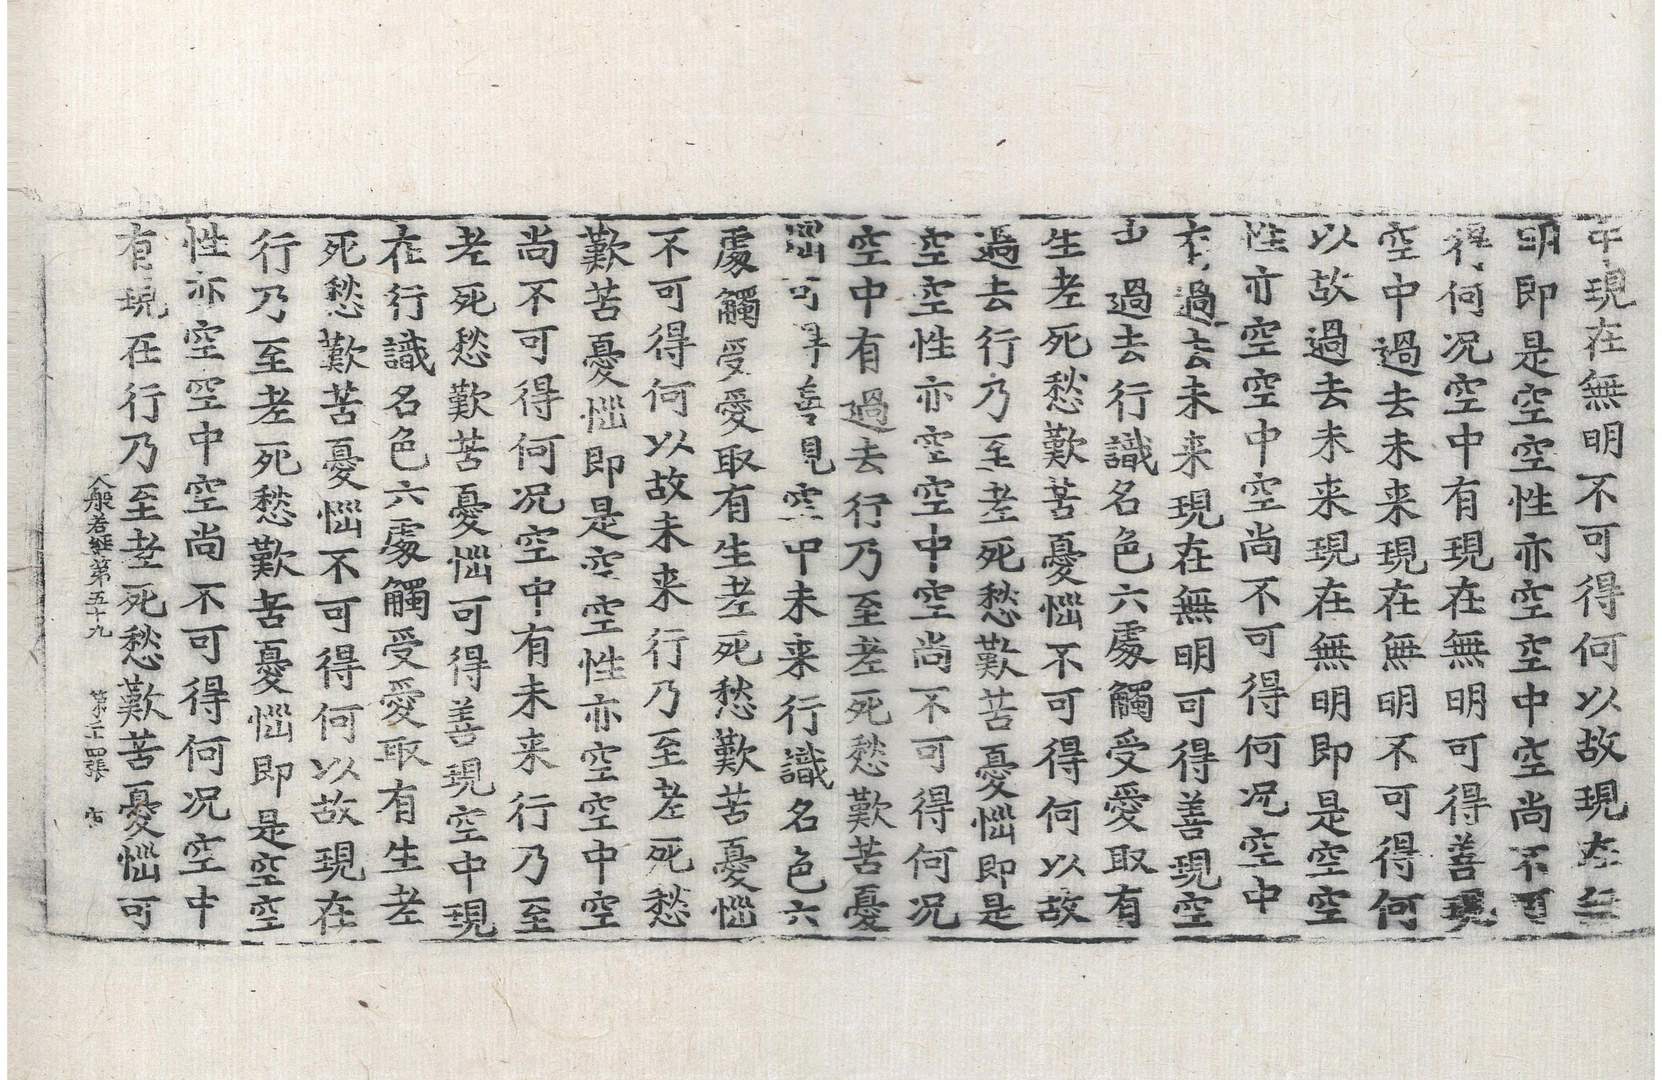 中現在無明不可得何以故現在無
明即是空空性亦空空中空尚不可
得何况空中有現在無明可得善現
空中過去未来現在無明不可得何
以故過去未来現在無明即是空空
性亦空空中空尚不可得何况空中
有過去未来現在無明可得善現空
中過去行識名色六處觸受愛取有
生老死愁歎苦憂惱不可得何以故
過去行乃至老死愁歎苦憂惱即是
空空性亦空空中空尚不可得何况
空中有過去行乃至老死愁歎苦憂
惱可得善現空中未来行識名色六
處觸受愛取有生老死愁歎苦憂惱
不可得何以故未来行乃至老死愁
歎苦憂惱即是空空性亦空空中空
尚不可得何况空中有未来行乃至
老死愁歎苦憂惱可得善現空中現
在行識名色六處觸受愛取有生老
死愁歎苦憂惱不可得何以故現在
行乃至老死愁歎苦憂惱即是空空
性亦空空中空尚不可得何况空中
有現在行乃至老死愁歎苦憂惱可
般若經第五十九 第 張